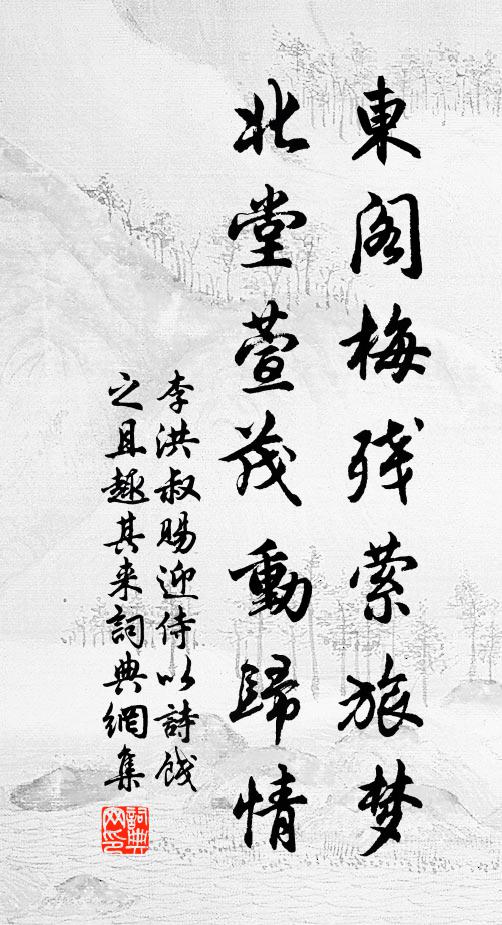 東阁梅残萦旅梦
北堂萱茂動歸情
李洪叔賜迎侍以詩餞
之且趣其来詞典網集
詞典网印